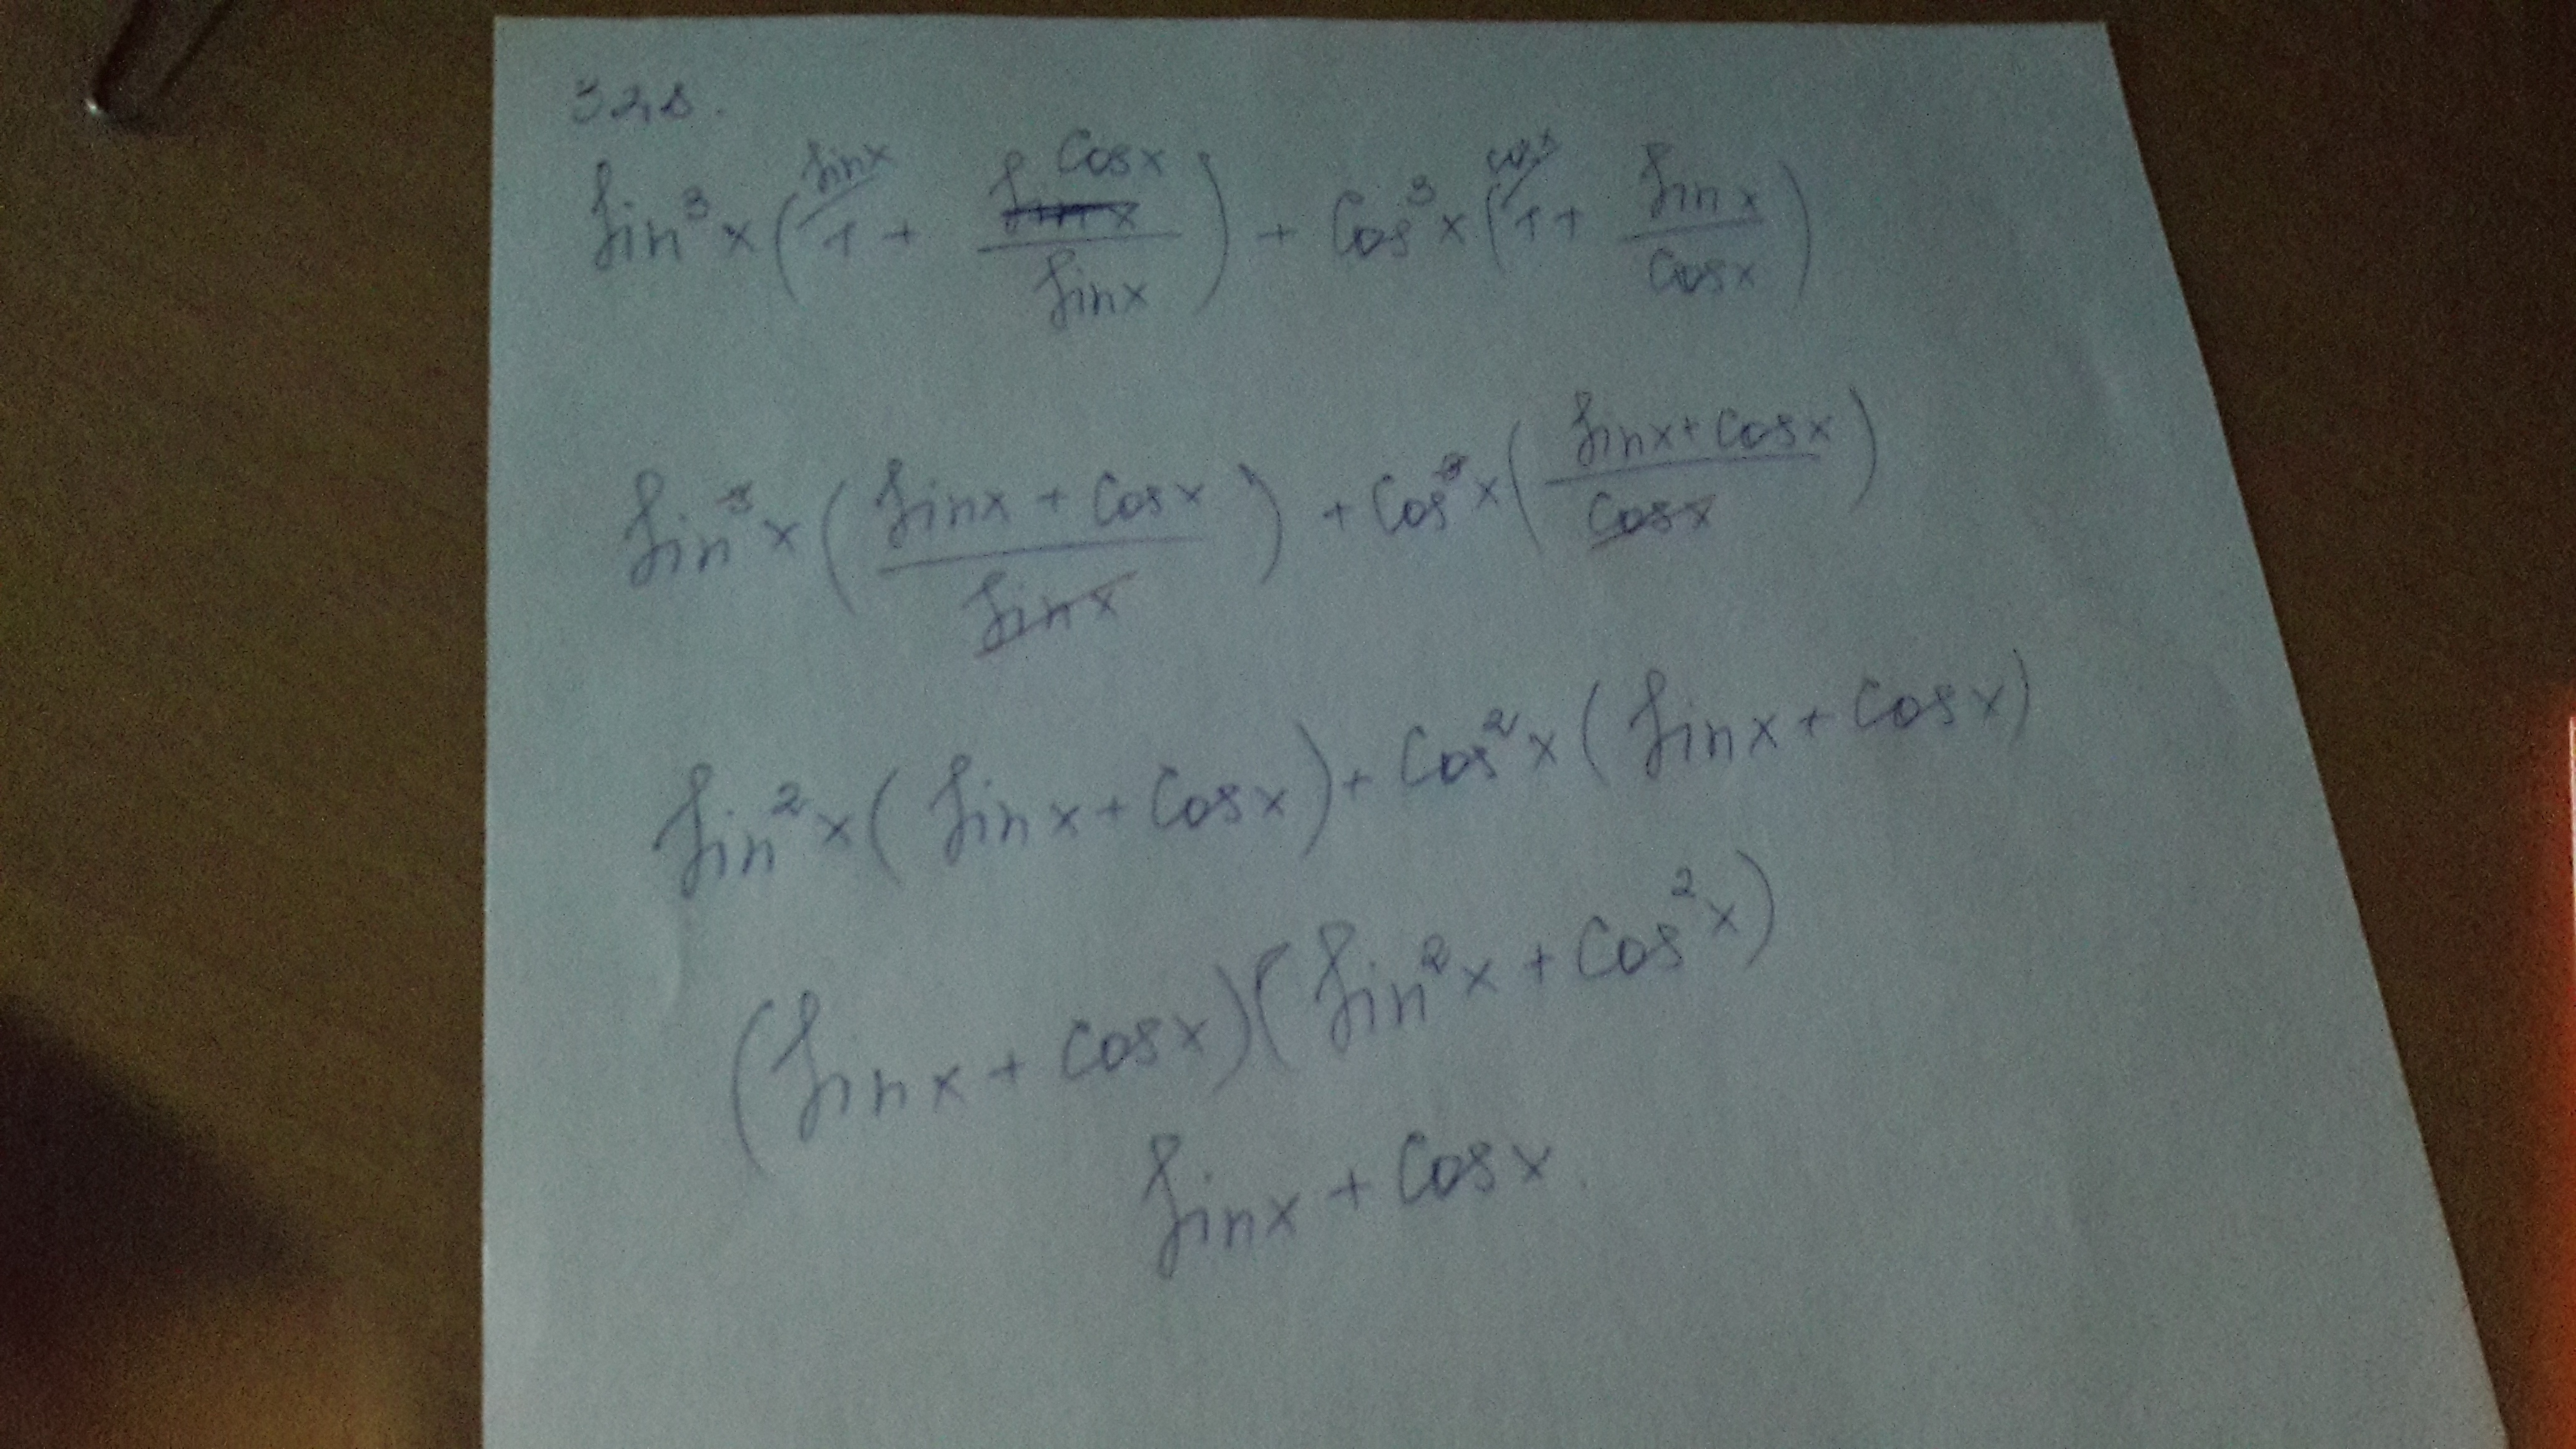 328.
sin³x (sinx/1 + cosx/sinx) + cos³x (cosx/1 + sinx/cosx)
sin³x (sinx + cosx / sinx) + cos³x (sinx + cosx / cosx)
sin²x (sinx + cosx) + cos²x (sinx + cosx)
(sinx + cosx)(sin²x + cos²x)
sinx + cosx.